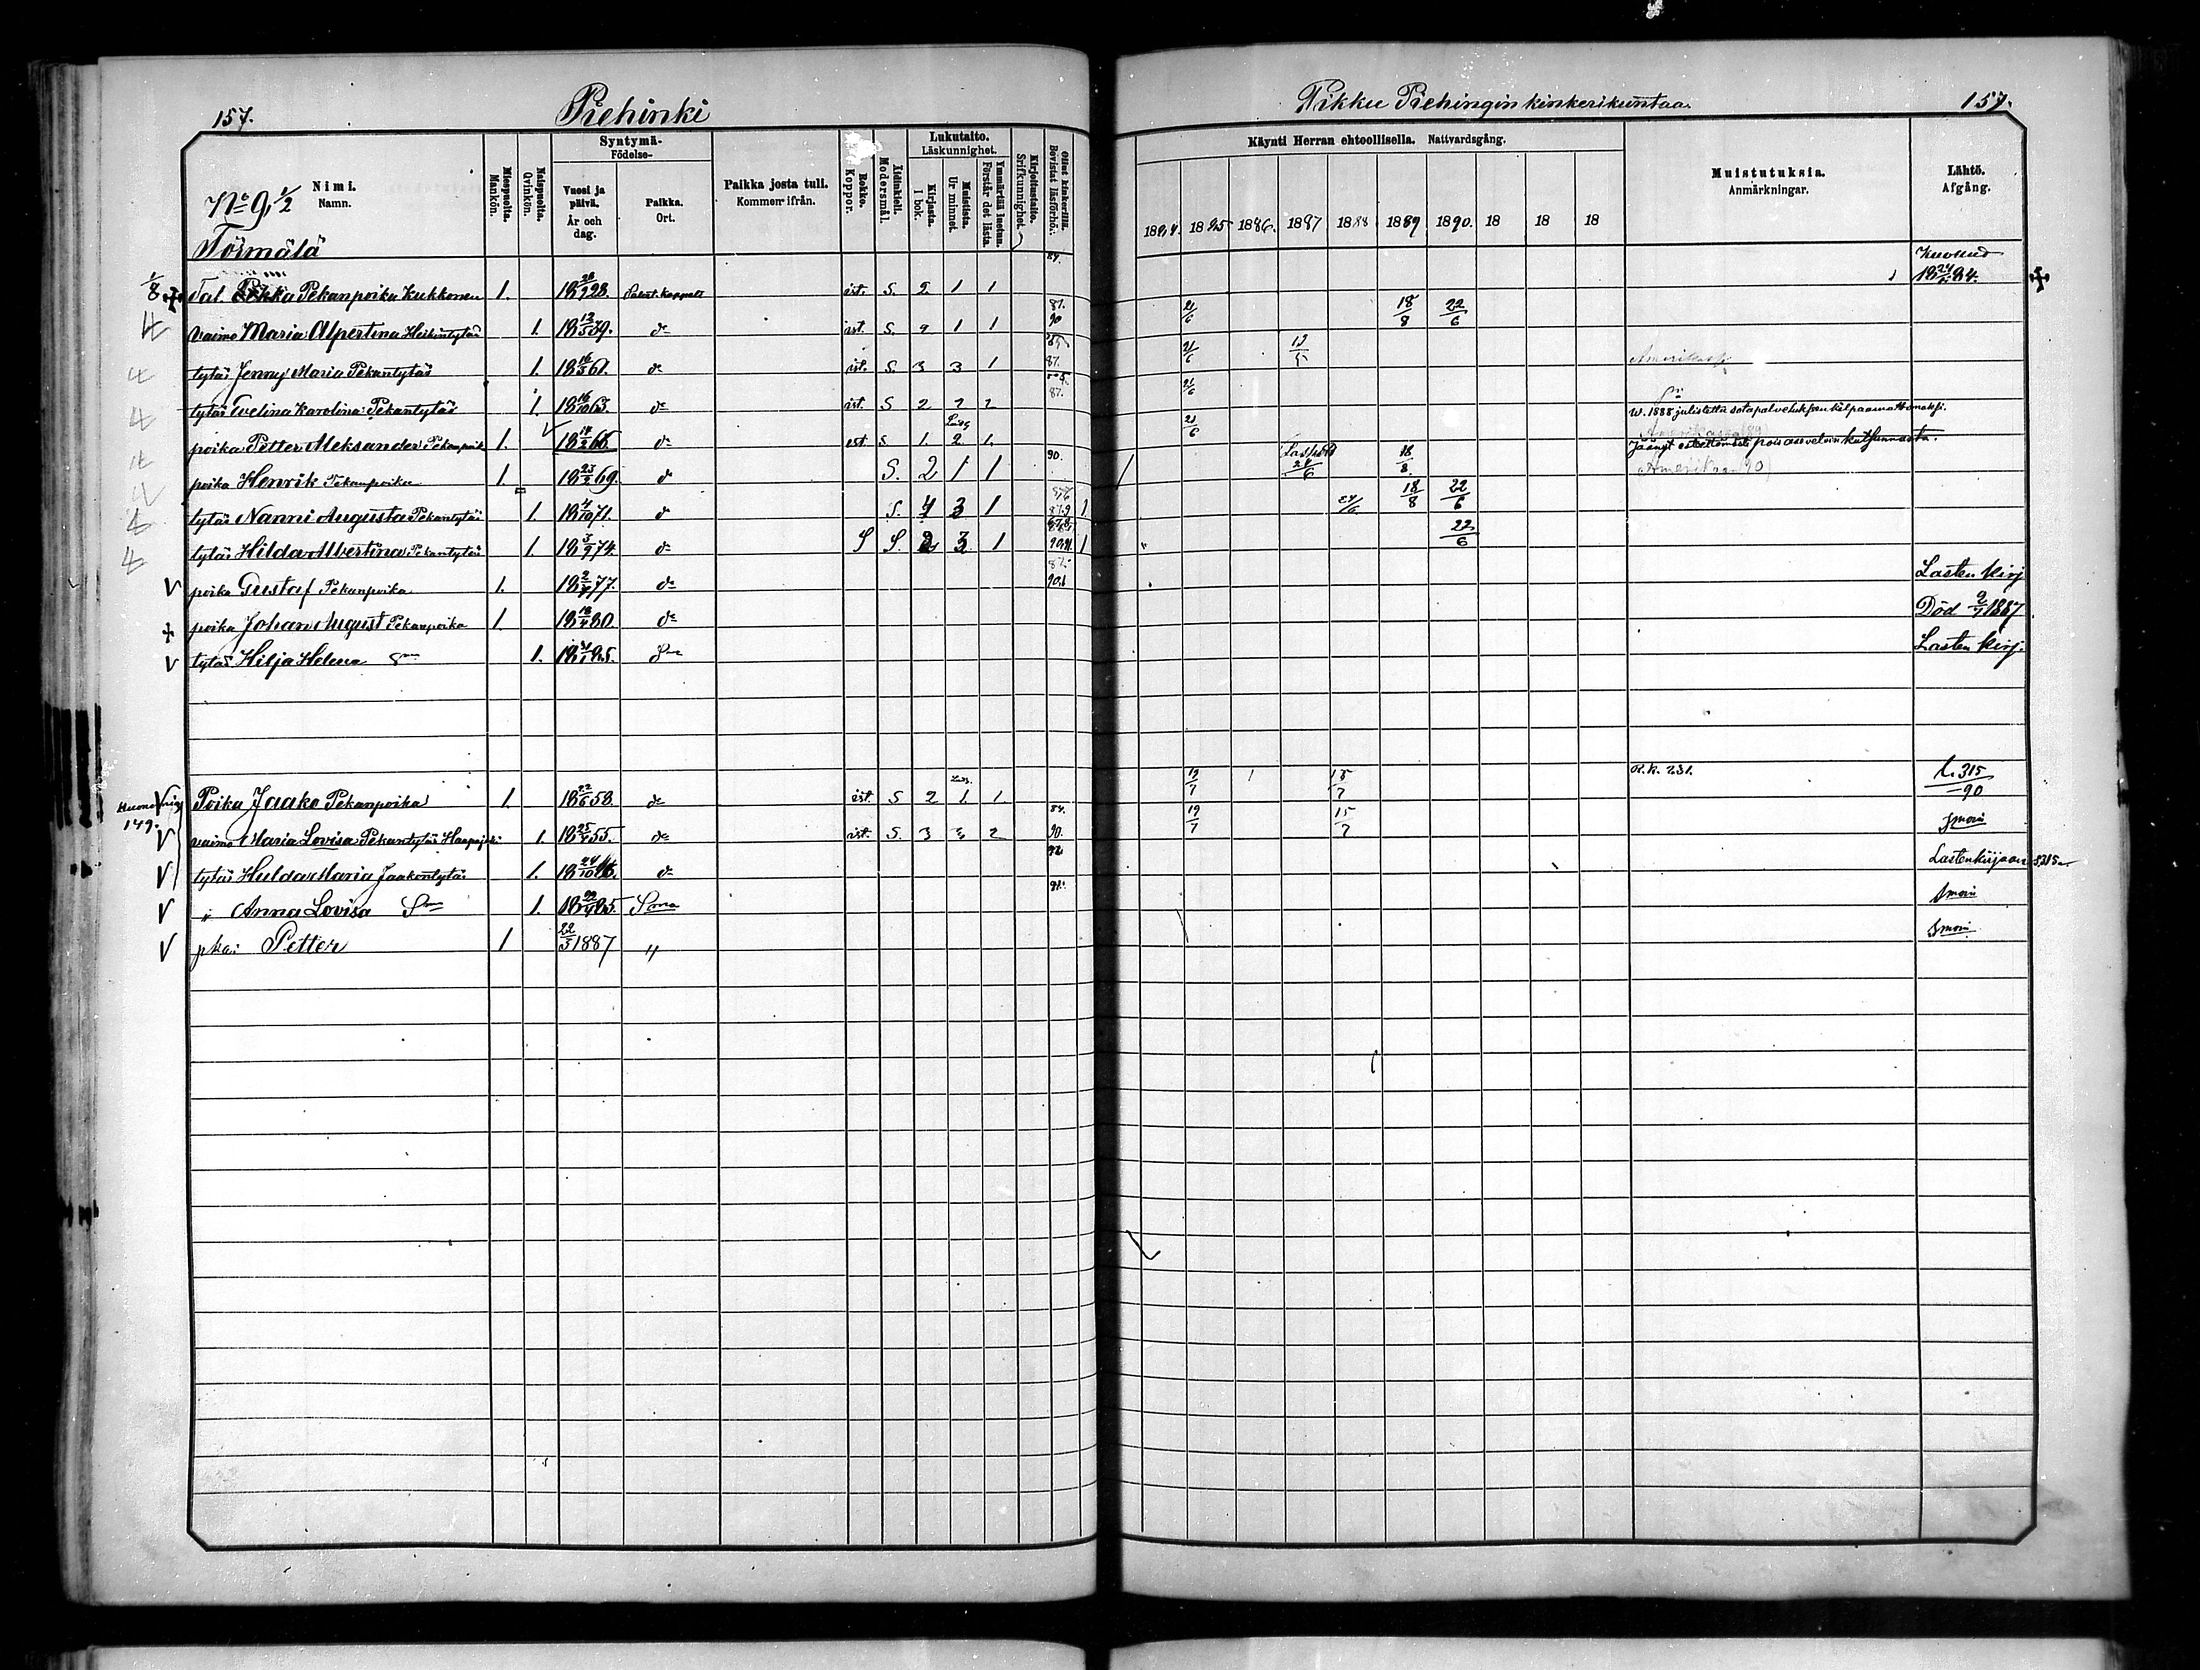 157. Piehinki
Syntymä-
Födelse-
Lukutaito.
Läskunnighet.
Nimi.
Namn.
Miespuolta.
Mankön.
Naispuolta.
Qvinkön.
Vuosi ja päivä.
År och dag.
Paikka.
Ort.
Paikka josta tuli.
Kommen ifrån.
Rokko.
Koppor.
Äidinkieli.
Modersmål.
Kirjasta.
I bok.
Muistista.
Ur minnet.
Ymmärtää luetun.
Förstår det lästa.
Kirjoitustaito.
Srifkunnighet.
Ollut kinkerillä.
Bevistat läsförhö..
No 9 1/2
Törmälä
Tal. Pekka Pekanpoika Kukkonen 1. 18 28/9 28. Salot. Kappeli ist. S. 2 1 1
vaimo Maria Alpertina Heikintytär 1. 18 13/5 39. do ist. S. 1 1
tytär Jenny Maria Pekantytär 1. 18 16/5 61. do ist. S. 3 3 1 87.
tytär Evelina Karolina Pekantytär 1. 18 16/10 63. do ist. S 2 2 2 87.
poika Petter Aleksander Pekanpoik 1. 18 14/2 66. do ist. S 1. 2 1.
poika Henrik Pekanpoika 1. 18 23/2 69. do S. 2 1 1 90.
tytär Nanni Augusta Pekantytär 1. 18 4/10 71. do S. 4 3 1 1
tytär Hilda Albertina Pekantytär 1. 18 3/9 74. do S S. 3 1 1
poika Gustaf Pekanpoika 1. 18 77. do
poika Johan August Pekanpoika 1. 18 18/4 80. do
tytär Hilja Helena 1. 18 85.
149.
Poika Jaako Pekanpoika 1. 18 22/6 58. do ist. S 2 1. 1.
vaimo Maria Lovisa Pekantytär 1. 18 25/4 55. do ist. S. 3 3 2 90.
tytär Hulda Maria Jaakontytär 1. 18 24/10 do
" Anna Lovisa 1. 18 85. Sma
pka: Petter 1 22/3 1887 "
Pikku Piehingin kinkerikuntaa. 157.
Käynti Herran ehtoollisella. Nattvardsgång.
Muistutuksia.
Anmärkningar.
Lähtö.
Afgång.
1884. 1885 1886. 1887 1888 1889 1890. 18 18 18
Kuollud
18 24/1 84.
21/6 18/8 22/6
21/6 Amerikassa
21/6
21/6 W. 1888 julistettu sotapalvelukseen kelpaamattomaksi.
Amerikassa (89)
24/6 18/8 Jäänyt esteettömästi pois asevelvon kutsunnasta.
Amerikaan 90)
24/6 18/8 22/6
22/6
Lasten kirj
Död 2/4 1887
Lasten kirj.
19/7 15/7 R.K. 231. L. 315
90
19/7 15/7 Smoin
Lastenkirjaan S.215
Smoin
Smoin